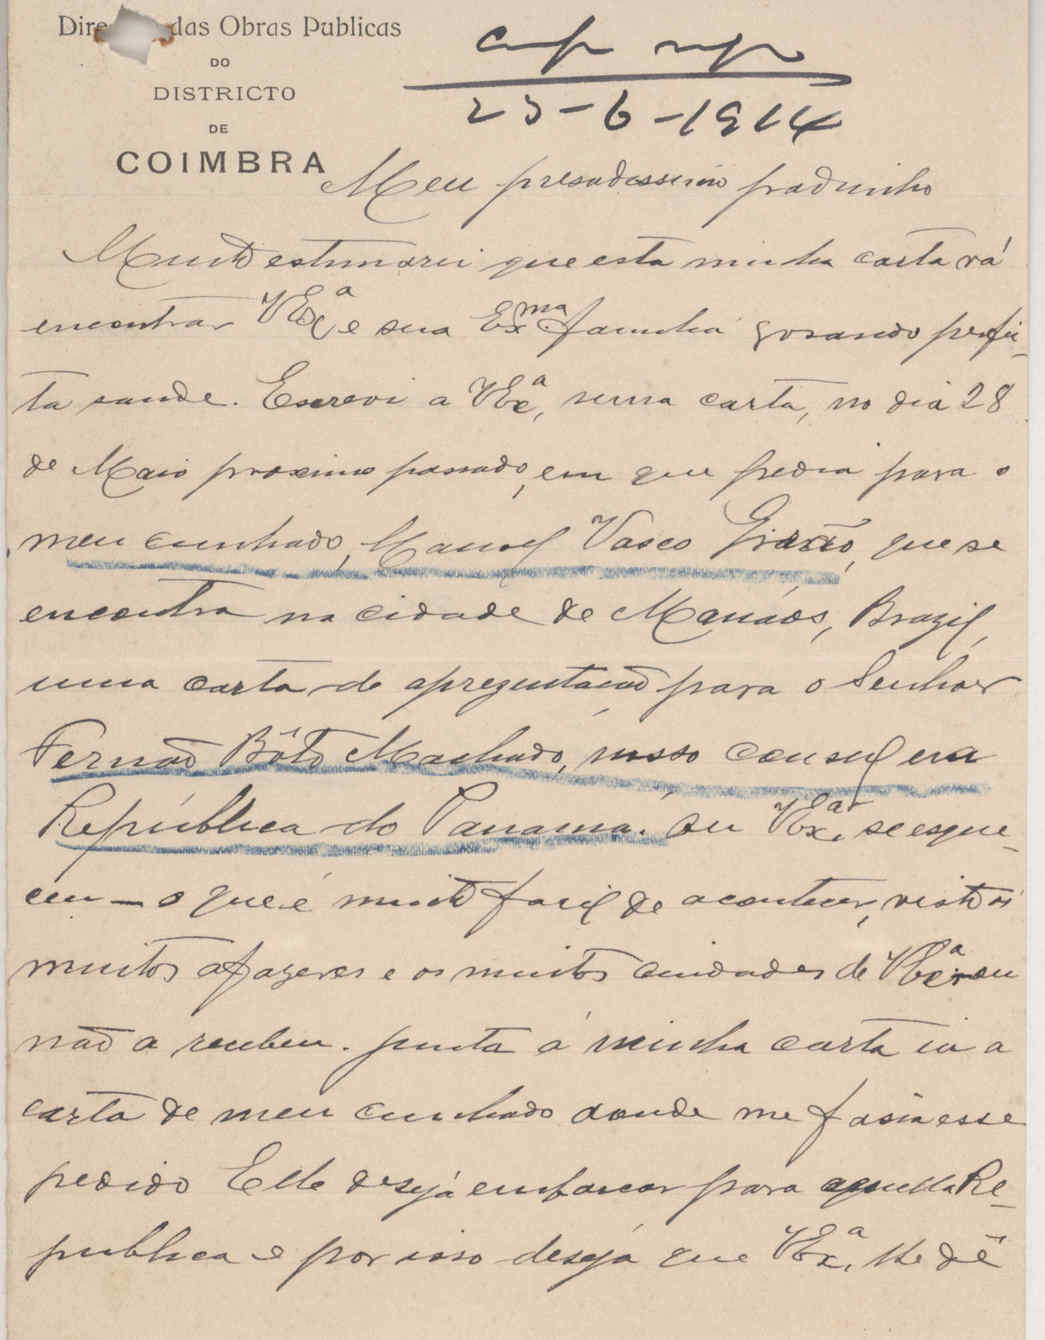 Direcção das Obras Publicas
DO
DISTRICTO
DE
COIMBRA
23-6-1914
Meu presadissimo padrinho
Muito estimarei que esta minha carta vá
encontrar VExª e sua Exma familia gosando perfei-
ta saude. Escrevi a VExª, numa carta, no dia 28
de Maio proximo passado, em que pedia para o
meu cunhado, Manoel Vasco Girão, que se
encontra na cidade de Manáos, Brazil,
uma carta de aprezentacao para o Senhor
Fernão Bôto Machado, nosso consul em
República do Panamá. Ou VExª, se esque-
ceu - o que é muito facil de acontecer, visto ós
muitos afazeres e os muitos cuidados de VExª ou
não a recebeu. Junta á minha carta ia a
carta de meu cunhado aonde me fasia esse
pedido Elle deseja embarcar para aquella Re-
publica e por isso deseja que VExª, lhe dê